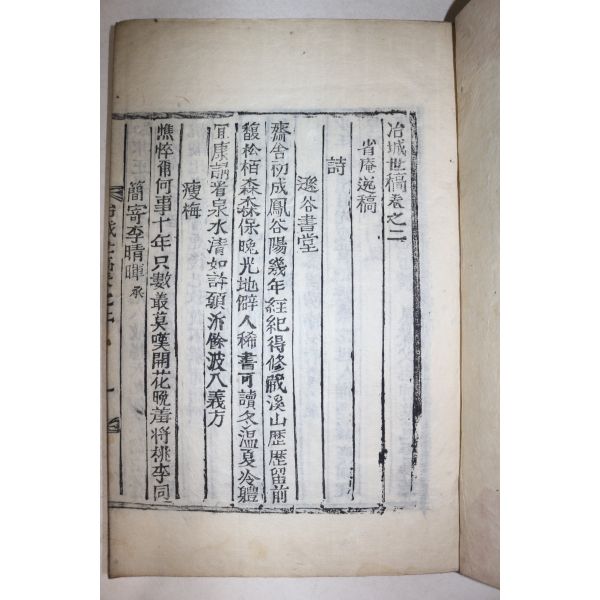 冶城世稿卷之二
省庵逸稿
詩
遯谷書堂
齋舍初成鳳谷陽幾年經紀得修藏溪山歷歷留前
馥松栢森森保晚光地僻人稀書可讀冬温夏冷軆
宜康謂着泉水清如許願泝餘波入義方
瘦梅
憔悴甫何事十年只數叢莫嘆開花晚羞將桃李同
簡寄李晴暉承